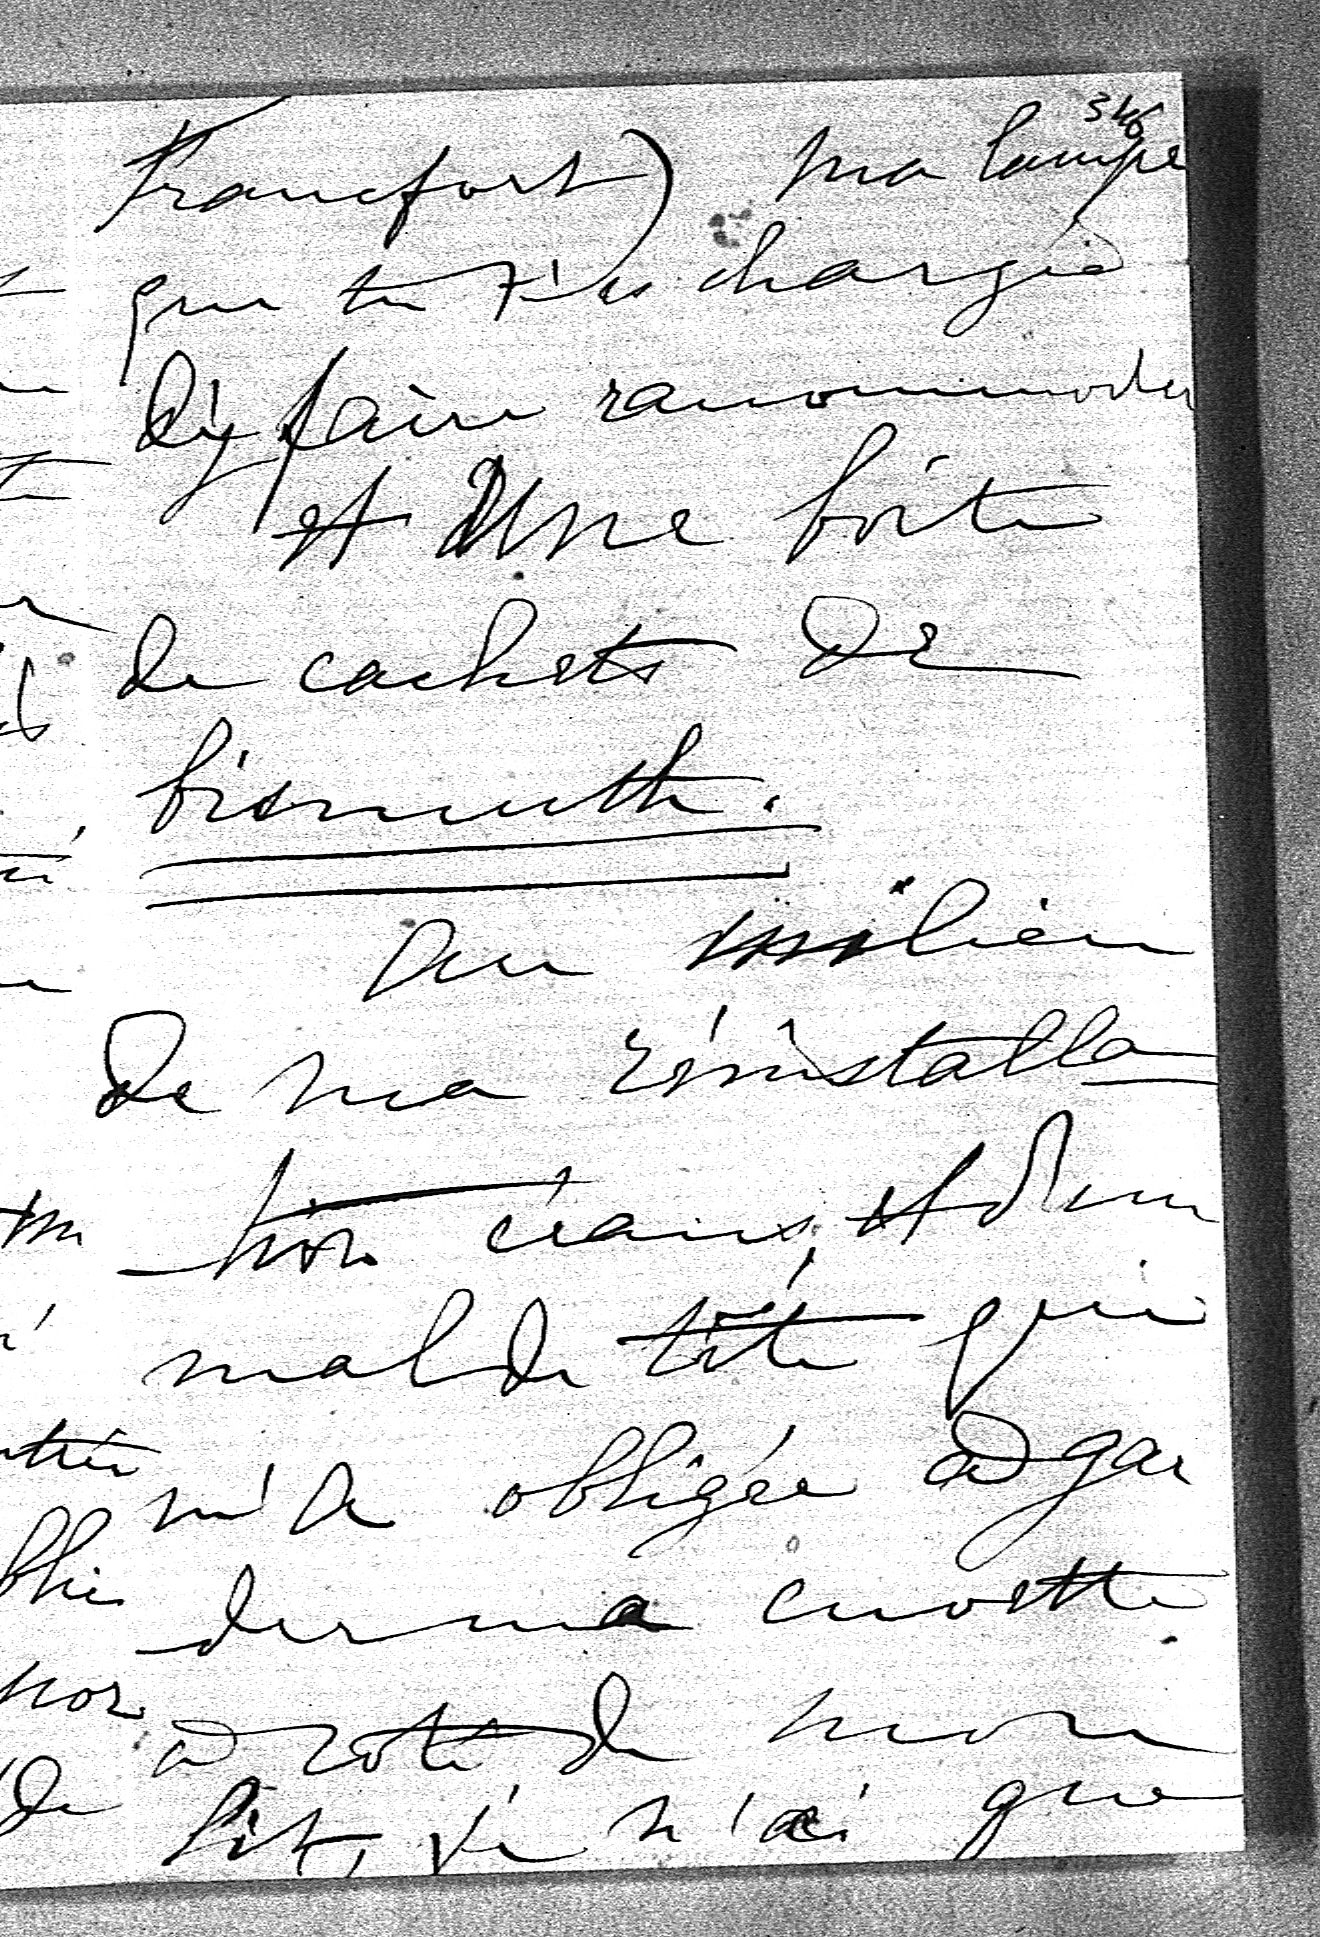 346
Francfort) ma lampe
que tu t'es chargé
d'y faire raccommoder
et Une boite
de cachets de
bismuth.
Au milieu
de ma réinstalla
tion céans, et d'un
mal de tête qui
m'a obligée à gar
der ma cuvette
à côté de mon
lit, je n'ai que